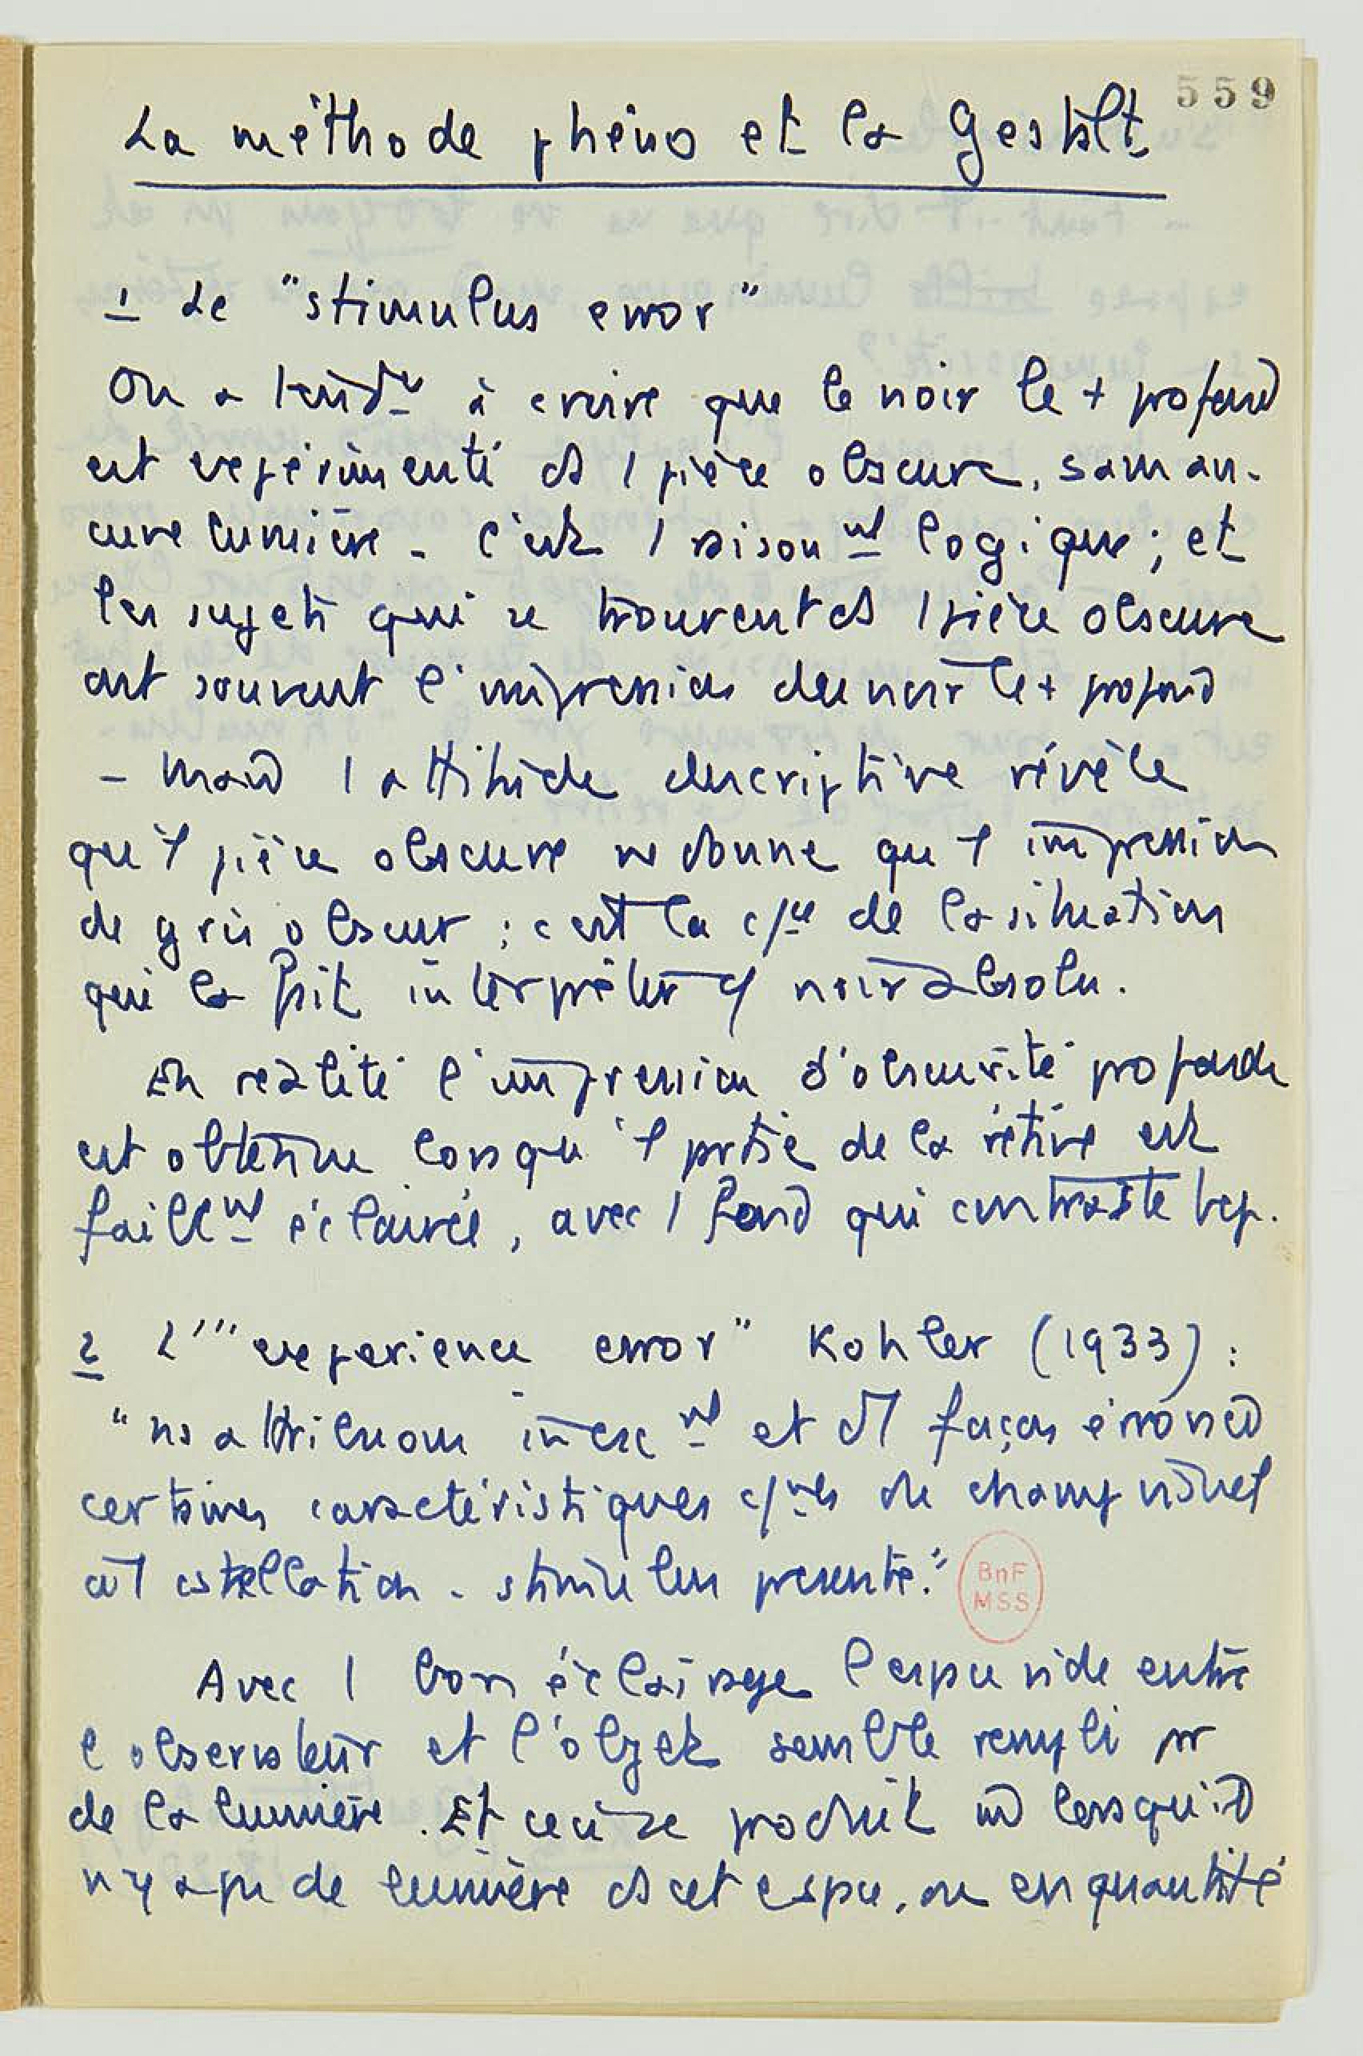 559
La méthode phéno et la Gestalt
1 Le "stimulus error"
On a tendce à croire que le noir le + profond
est expérimenté ds 1 pièce obscure, sans au-
cune lumière - C'est 1 raisonnt logique ; et
les sujets qui se trouvent ds 1 pièce obscure
ont souvent l'impression du noir le + profond
- Mais 1 attitude descriptive révèle
qu'1 pièce obscure ne donne qu'1 impression
de gris obscur ; c'est la c/ce de la situation
qui la fait interpréter c/ noir absolu.
En réalité l'impression d'obscurité profonde
est obtenue lorsqu'1 partie de la rétine est
faiblnt éclairée, avec 1 fond qui contraste bcp.
2 L'"experience error" Kohler (1933) :
"ns attribuons inexcnt et d'1 façon erronée
certaines caractéristiques du champ visuel
constellation - stimulus présenté."
BnF
MSS
Avec 1 bon éclairage l'espace vide entre
l'observateur et l'objet semble rempli par
de la lumière. Et ceci se produit lorsqu'il
n'y a pas de lumière ds cet espace, ou en quantité